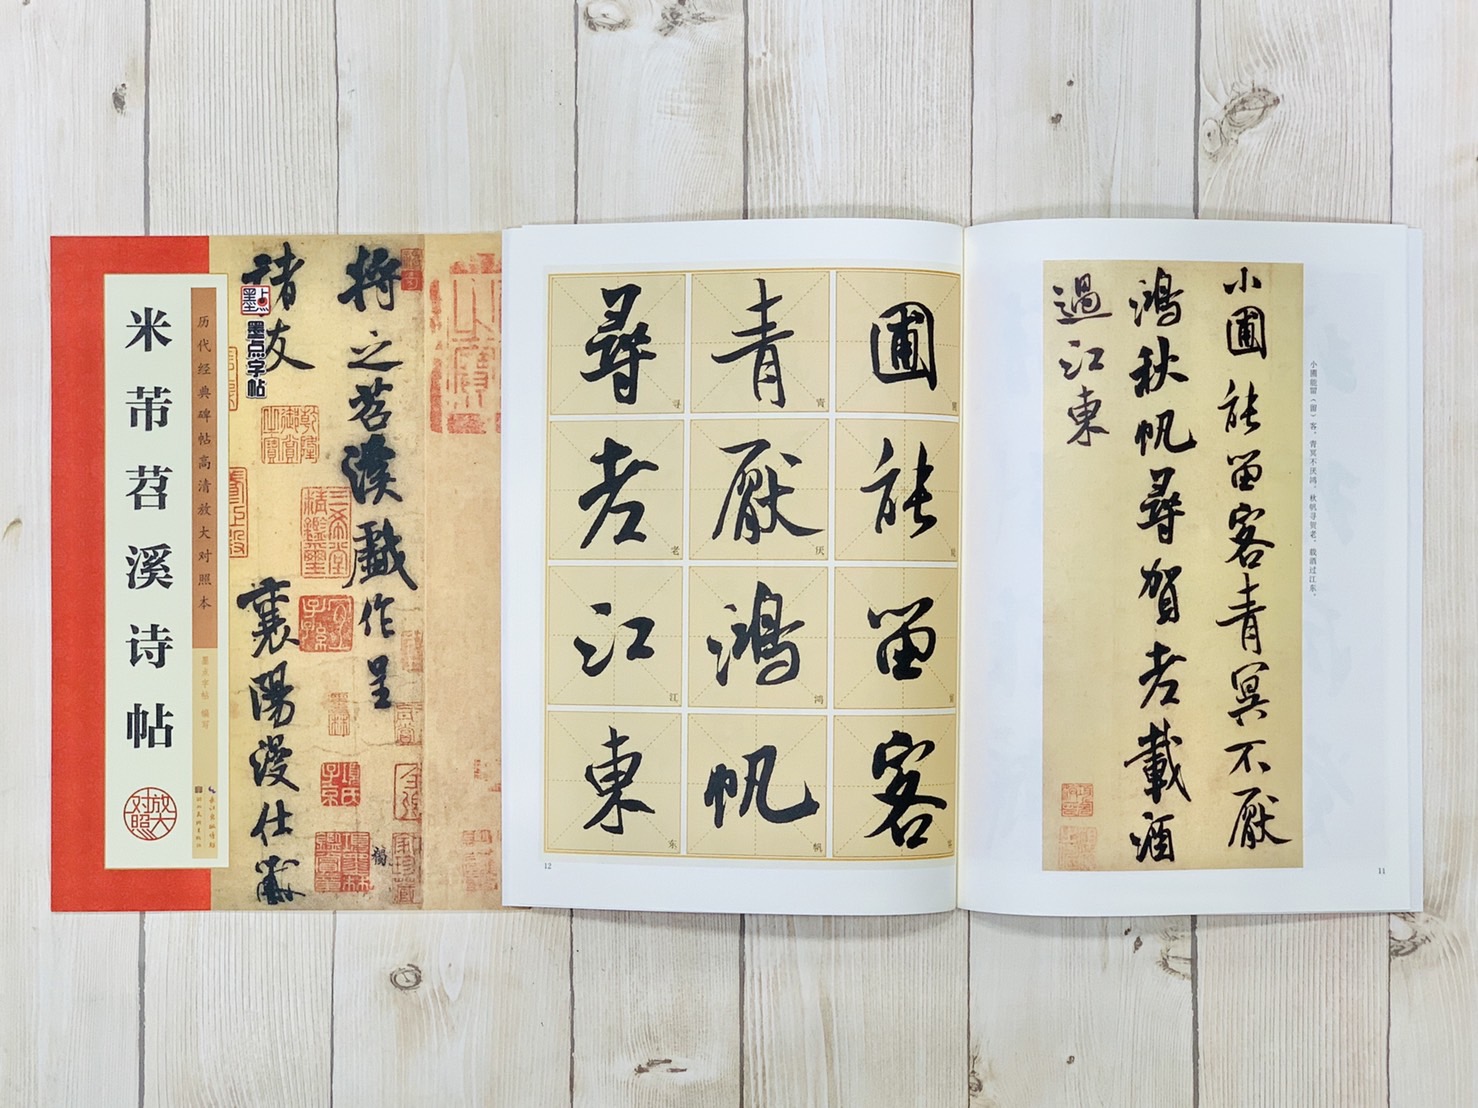 米芾苕溪诗帖
历代经典碑帖高清放大对照本
墨点字帖 编写
放大对照
长江出版传媒
湖北美术出版社
墨点
墨点字帖
将之苕溪戏作呈
诸友
襄陽漫仕黻
圃
能
留
客
青
厭
鴻
帆
尋
老
江
東
圃
能
留
客
青
厌
鸿
帆
寻
老
江
东
12
小圃能留客青冥不厭
鴻秋帆尋賀老載酒
過江東
小圃能留(留)客,青冥不厌鸿。秋帆寻贺老,载酒过江东。
11